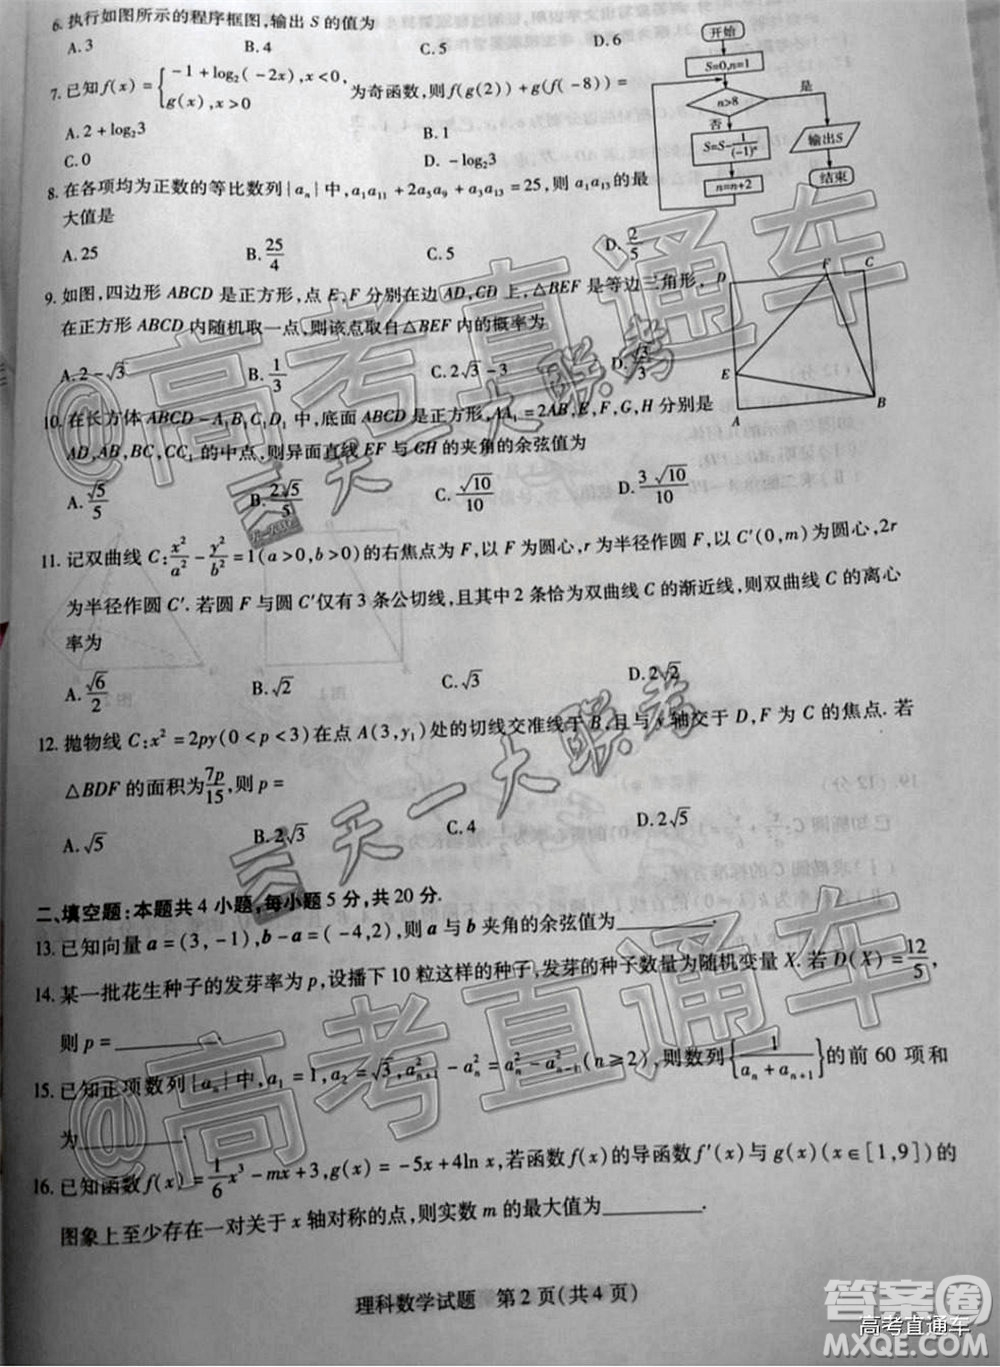 6. 执行如图所示的程序框图,输出 S 的值为
A. 3 B. 4 C. 5 D. 6
7. 已知 f(x) = { -1 + log₂(-2x), x<0, g(x), x>0 为奇函数,则 f(g(2)) + g(f(-8)) =
A. 2 + log₂3 B. 1
C. 0 D. -log₂3
8. 在各项均为正数的等比数列 {aₙ} 中, a₁a₁₁ + 2a₅a₉ + a₃a₁₃ = 25, 则 a₁a₁₃ 的最
大值是
A. 25 B. 25/4 C. 5 D. 2/5
开始
S=0,n=1
n>8
是
否
S=S-1/(-1)ⁿ
输出S
n=n+2
结束
9. 如图,四边形 ABCD 是正方形,点 E,F 分别在边 AD,CD 上,△BEF 是等边三角形,
在正方形 ABCD 内随机取一点,则该点取自△BEF 内的概率为
A. 2-√3 B. 1/3 C. 2√3-3 D. √3/3
D F C
E
A B
10. 在长方体 ABCD-A₁B₁C₁D₁ 中,底面 ABCD 是正方形,AA₁=2AB,E,F,G,H 分别是
AD,AB,BC,CC₁ 的中点,则异面直线 EF 与 GH 的夹角的余弦值为
A. √5/5 B. 2√5/5 C. √10/10 D. 3√10/10
11. 记双曲线 C: x²/a² - y²/b² = 1(a>0,b>0)的右焦点为 F,以 F 为圆心,r 为半径作圆 F,以 C′(0,m)为圆心,2r
为半径作圆 C′. 若圆 F 与圆 C′仅有 3 条公切线,且其中 2 条恰为双曲线 C 的渐近线,则双曲线 C 的离心
率为
A. √6/2 B. √2 C. √3 D. 2√2
12. 抛物线 C: x²=2py(0<p<3)在点 A(3,y₁)处的切线交准线于 B,且与 x 轴交于 D,F 为 C 的焦点. 若
△BDF 的面积为 7p/15,则 p=
A. √5 B. 2√3 C. 4 D. 2√5
二、填空题:本题共 4 小题,每小题 5 分,共 20 分.
13. 已知向量 a=(3,-1),b-a=(-4,2),则 a 与 b 夹角的余弦值为________.
14. 某一批花生种子的发芽率为 p,设播下 10 粒这样的种子,发芽的种子数量为随机变量 X. 若 D(X)=12/5,
则 p=________.
15. 已知正项数列{aₙ}中,a₁=1,a₂=√3,a²ₙ₊₁-a²ₙ=a²ₙ-a²ₙ₋₁(n≥2),则数列{1/(aₙ+aₙ₊₁)}的前 60 项和
为________.
16. 已知函数 f(x)=1/6x³-mx+3,g(x)=-5x+4ln x,若函数 f(x)的导函数 f′(x)与 g(x)(x∈[1,9])的
图象上至少存在一对关于 x 轴对称的点,则实数 m 的最大值为________.
理科数学试题 第 2 页(共 4 页)
@高考直通车
天一大联考
天一大联考
@高考直通车
答案圈
MXQE.COM
高考直通车